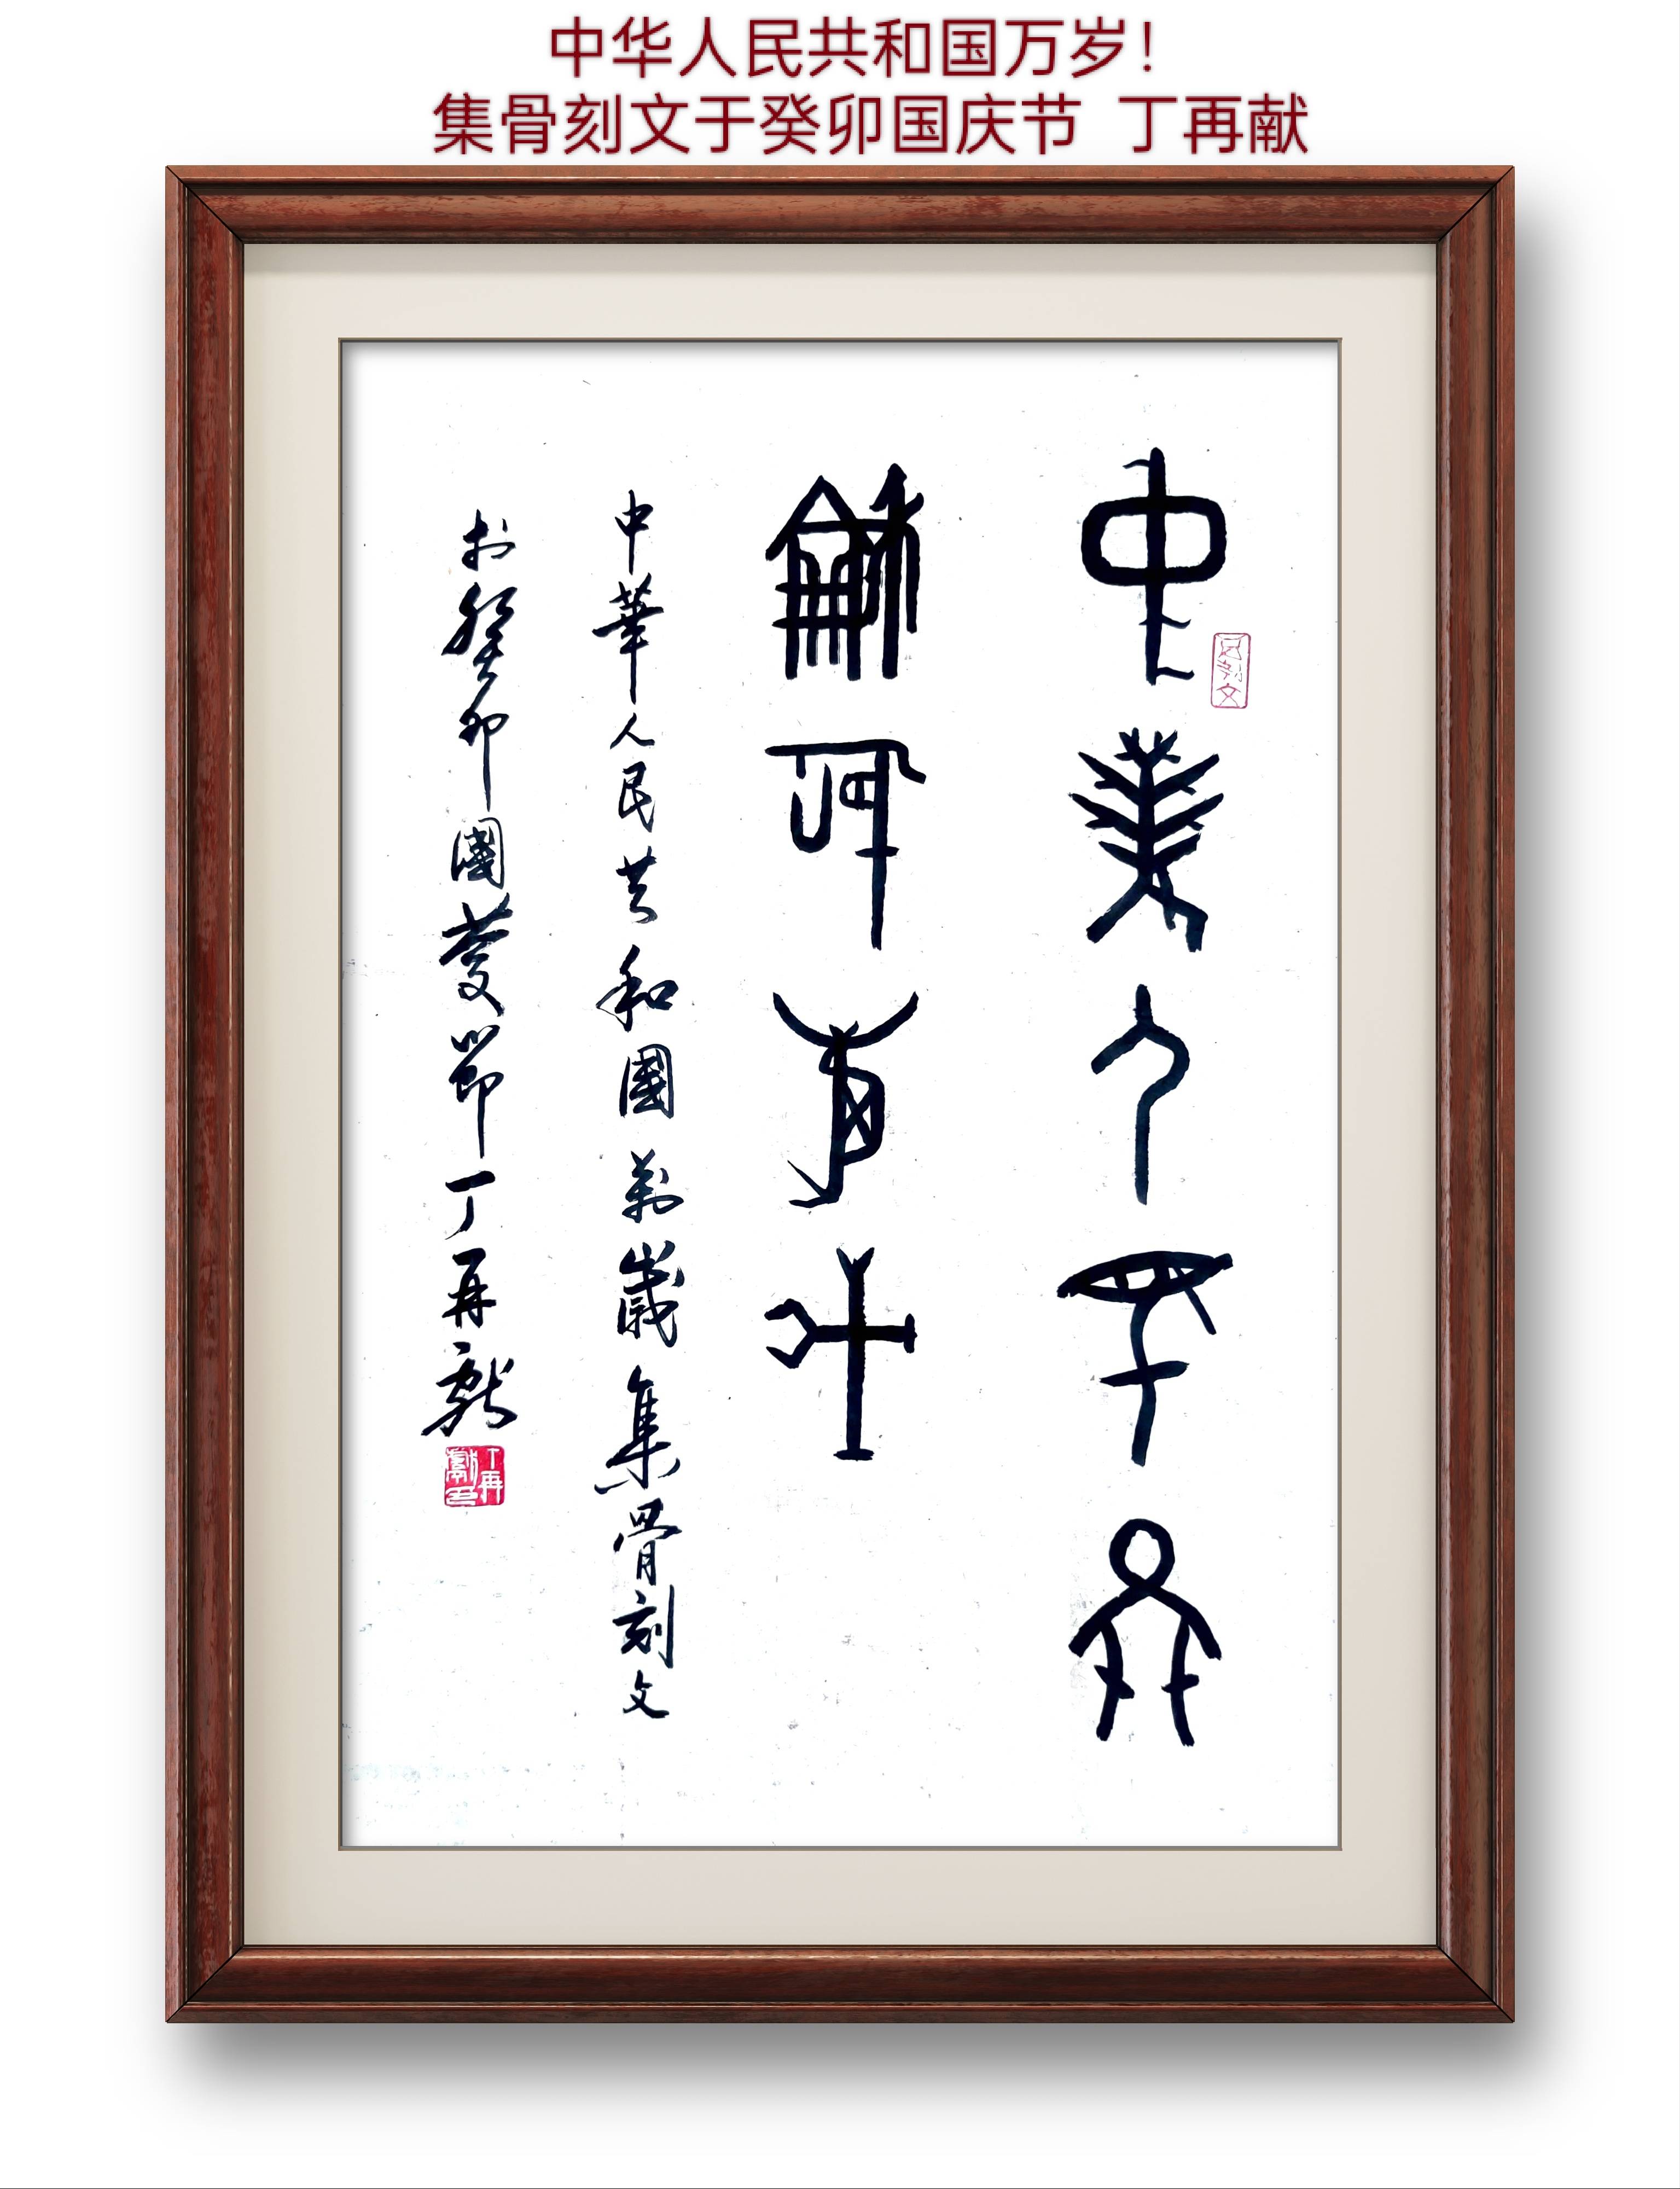 中华人民共和国万岁！
集骨刻文于癸卯国庆节 丁再献
中華人民共
和國萬歲
骨刻文
中華人民共和國萬歲集骨刻文
於癸卯國慶節丁再獻
丁再獻印